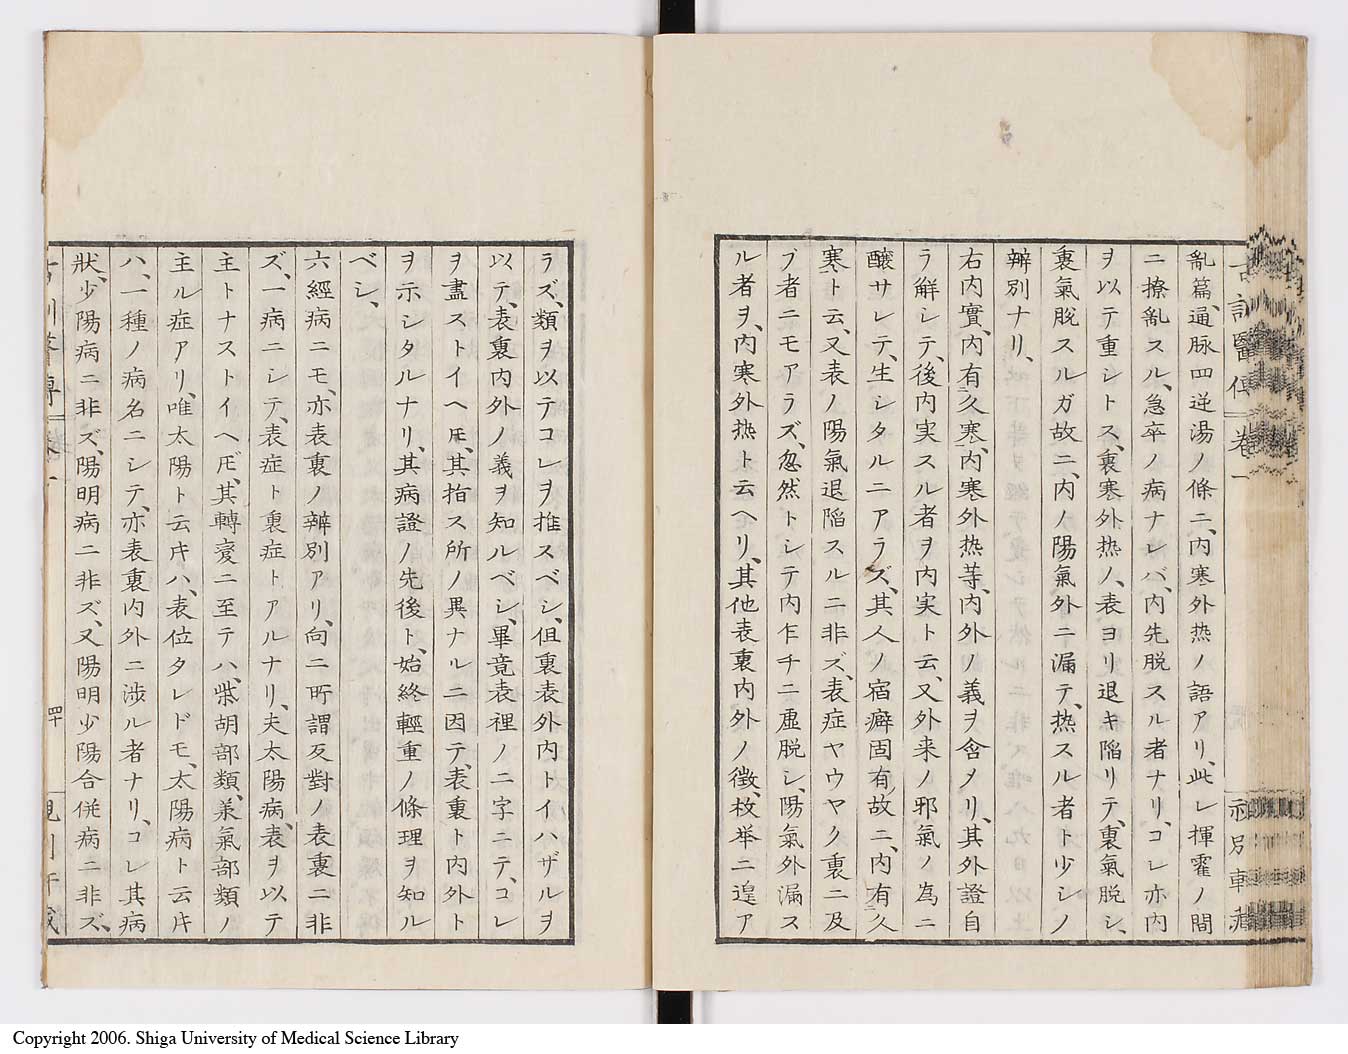 亂篇、通脉四逆湯ノ條ニ、内寒外热ノ語アリ、此レ揮霍ノ間
ニ撩亂スル、急卒ノ病ナレバ、内先脱スル者ナリ、コレ亦内
ヲ以テ重シトス、裏寒外热ノ、表ヨリ退キ陥リテ、裏氣脱シ、
裏氣脱スルガ故ニ、内ノ陽氣、外ニ漏テ、热スル者ト少シノ
辨別ナリ、
右内實、内有久寒、内寒外热等、内外ノ義ヲ含メリ、其外證自
ラ解シテ、後内実スル者ヲ内実ト云、又外来ノ邪氣ノ為ニ
釀サレテ、生シタルニアラズ、其人ノ宿癖固有故ニ、内有久
寒ト云、又表ノ陽氣退陥スルニ非ズ、表症ヤウヤク裏ニ及
ブ者ニモアラズ、忽然トシテ内乍チニ虚脱シ、陽氣外漏ス
ル者ヲ、内寒外热ト云ヘリ、其他表裏内外ノ徴、枚挙ニ遑ア
ラズ、類ヲ以テコレヲ推スベシ、但裏表外内トイハザルヲ
以テ、表裏内外ノ義ヲ知ルベシ、畢竟表裡ノ二字ニテ、コレ
ヲ盡ストイヘ𪜈、其指ス所ノ異ナルニ因テ、表裏ト内外ト
ヲ示シタルナリ、其病證ノ先後ト、始終輕重ノ條理ヲ知ル
ベシ、
六經病ニモ、亦表裏ノ辨別アリ、向ニ所謂反對ノ表裏ニ非
ズ、一病ニシテ、表症ト裏症トアルナリ、夫太陽病、表ヲ以テ
主トナストイヘ𪜈、其轉変ニ至テハ、柴胡部類、承氣部類ノ
主ル症アリ、唯太陽ト云𪜈ハ、表位タレドモ、太陽病ト云𪜈
ハ、一種ノ病名ニシテ、亦表裏内外ニ渉ル者ナリ、コレ其病
狀、少陽病ニ非ズ、陽明病ニ非ズ、又陽明少陽合併病ニ非ズ、
古訓醫傳 卷一
四十
Copyright 2006. Shiga University of Medical Science Library